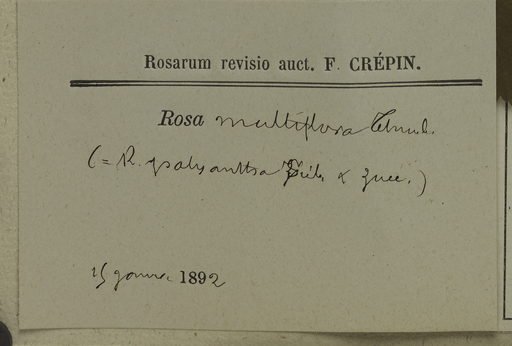 Rosarum revisio auct. F. CRÉPIN.
Rosa multiflora Thunb.
(= R. polyantha Sieb. & Zucc.)
15 1892